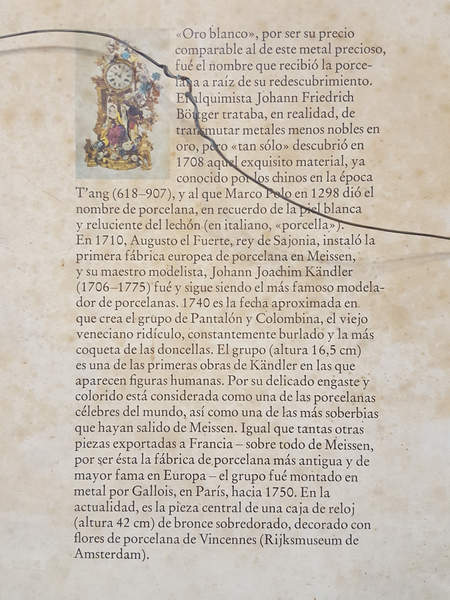 «Oro blanco», por ser su precio
comparable al de este metal precioso,
fué el nombre que recibió la porce-
lana a raíz de su redescubrimiento.
El alquimista Johann Friedrich
Böttger trataba, en realidad, de
transmutar metales menos nobles en
oro, pero «tan sólo» descubrió en
1708 aquel exquisito material, ya
conocido por los chinos en la época
T'ang (618–907), y al que Marco Polo en 1298 dió el
nombre de porcelana, en recuerdo de la piel blanca
y reluciente del lechón (en italiano, «porcella»).
En 1710, Augusto el Fuerte, rey de Sajonia, instaló la
primera fábrica europea de porcelana en Meissen,
y su maestro modelista, Johann Joachim Kändler
(1706–1775) fué y sigue siendo el más famoso modela-
dor de porcelanas. 1740 es la fecha aproximada en
que crea el grupo de Pantalón y Colombina, el viejo
veneciano ridículo, constantemente burlado y la más
coqueta de las doncellas. El grupo (altura 16,5 cm)
es una de las primeras obras de Kändler en las que
aparecen figuras humanas. Por su delicado engaste y
colorido está considerada como una de las porcelanas
célebres del mundo, así como una de las más soberbias
que hayan salido de Meissen. Igual que tantas otras
piezas exportadas a Francia – sobre todo de Meissen,
por ser ésta la fábrica de porcelana más antigua y de
mayor fama en Europa – el grupo fué montado en
metal por Gallois, en París, hacia 1750. En la
actualidad, es la pieza central de una caja de reloj
(altura 42 cm) de bronce sobredorado, decorado con
flores de porcelana de Vincennes (Rijksmuseum de
Amsterdam).